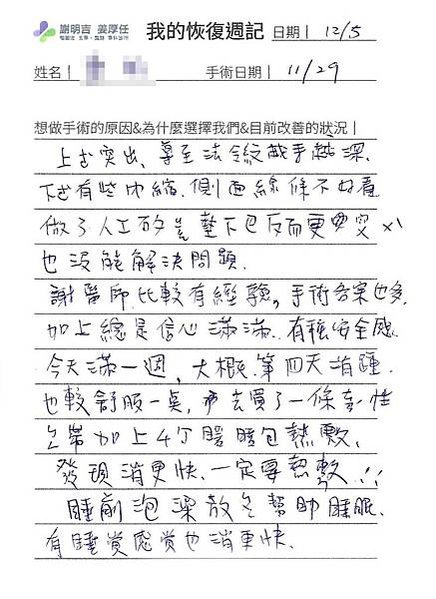 謝明吉 姜厚任
我的恢復週記 日期| 12/5
姓名| 手術日期| 11/29
想做手術的原因&為什麼選擇我們&目前改善的狀況|
上古突出、導至法令紋越深、
下古有些內縮、側面線條不好看
做了人工 墊下巴反而更突
也沒能解決問題、
謝醫師比較有經驗，手術答案也多
加上總是信心滿滿、有種安全感
今天滿一週，大概第四天消腫、
也較舒服一點，去買了一條
加上4個暖暖包熱敷、
發現消更快、一定要熱敷!!!
睡前泡澡 幫助睡眠、
有睡覺感覺也消更快、